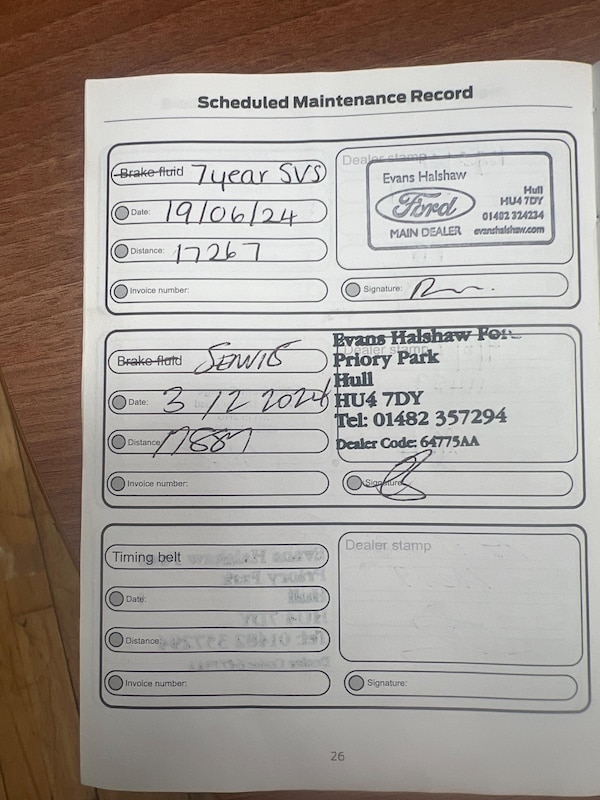 Scheduled Maintenance Record
Brake fluid 7 year SVS
Date: 19/06/24
Distance: 17267
Invoice number:
Dealer stamp
Evans Halshaw
Ford
MAIN DEALER
Hull
HU4 7DY
01482 324234
evanshalshaw.com
Signature:
Brake fluid
Date: 3 /12 2024
Distance:
Invoice number:
Dealer stamp
Evans Halshaw
Priory Park
Hull
HU4 7DY
Tel: 01482 357294
Dealer Code: 64775AA
Signature:
Timing belt
Date:
Distance:
Invoice number:
Dealer stamp
Signature:
26